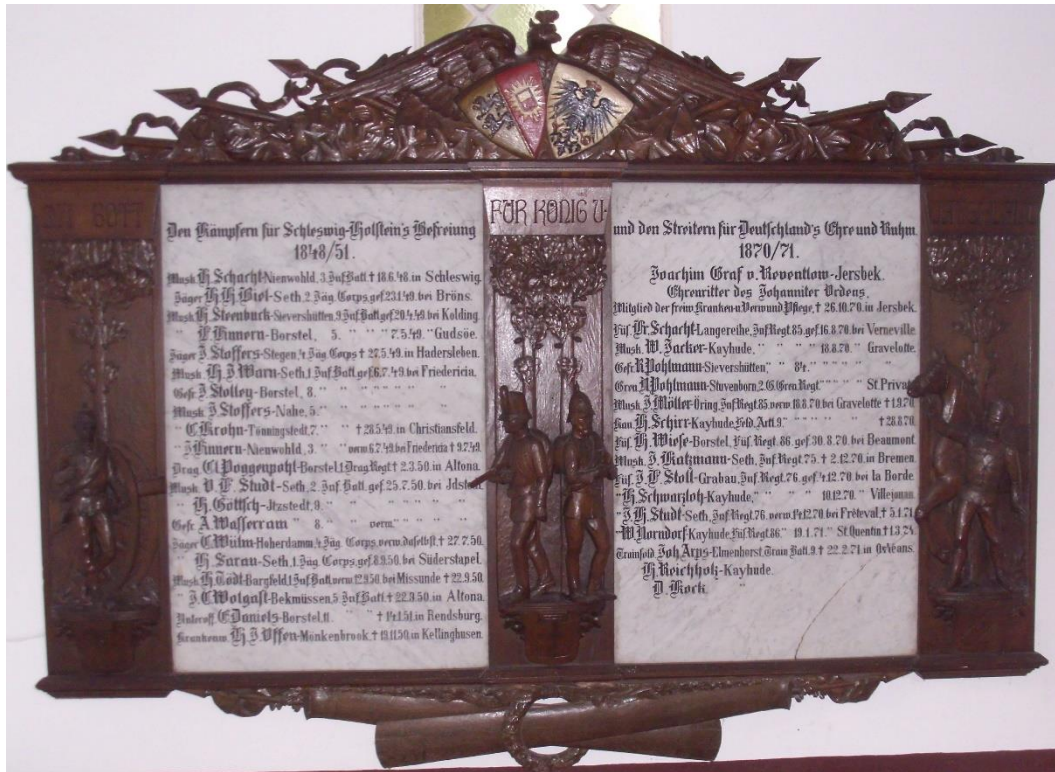 MIT GOTT
FÜR KÖNIG U-
Den Kämpfern für Schleswig-Holstein's Befreiung
1848/51.
Musk. H. Schacht-Nienwohld, 3. Inf. Batt. † 18.6.48. in Schleswig.
Jäger H. H. Biel-Seth, 2. Jäg. Corps, gef. 23.4.49. bei Bröns.
Musk. H. Steenbuck-Sievershütten, 9. Inf. Batt. gef. 20.4.49. bei Kolding.
" F. Finnern-Borstel, 5. " " " 7.5.49. " Gudsöe.
Jäger J. Stoffers-Stegen, 4. Jäg. Corps † 27.5.49. in Hadersleben.
Musk. H. J. Warn-Seth, 1. Inf. Batt. gef. 6.7.49. bei Friedericia.
Gefr. J. Stolley-Borstel, 8. " " " " " "
Musk. J. Stoffers-Nahe, 5. " " " " " "
" C. Krohn-Tönningstedt, 7. " " † 28.5.49. in Christiansfeld.
J. Finnern-Nienwohld, 3. " " verw. 6.7.49. bei Friedericia † 9.7.49.
Drag. Cl. Poggenpohl-Borstel, 1. Drag. Regt. † 2.3.50. in Altona.
Musk. D. F. Studt-Seth, 2. Inf. Batt. gef. 25.7.50. bei Idstedt.
" H. Göttsch-Itzstedt, 9. " " " " " "
Gefr. A. Wasserram " 8. " " verm. " " " "
Jäger C. Wülm-Hoherdamm, 4. Jäg. Corps, verw. daselbst, † 27.7.50.
" H. Sarau-Seth, 1. Jäg. Corps, gef. 8.9.50. bei Süderstapel.
Musk. H. Todt-Bargfeld, 1. Inf. Batt. verw. 12.9.50. bei Missunde † 22.9.50.
" J. C. Wolgast-Bekmüssen, 5. Inf. Batt. † 22.9.50. in Altona.
Unteroff. C. Daniels-Borstel, 11. " " † 14.1.51. in Rendsburg.
Krankenw. H. J. Offen-Mönkenbrook, † 19.11.50. in Kellinghusen.
und den Streitern für Deutschland's Ehre und Ruhm.
1870/71.
Joachim Graf v. Reventlow-Jersbek.
Ehrenritter des Johanniter Ordens.
Mitglied der freiw. Kranken u. Verwund. Pflege, † 26.10.70. in Jersbek.
Füs. Fr. Schacht-Langereihe, Inf. Regt. 85. gef. 16.8.70. bei Verneville.
Musk. W. Jacker-Kayhude, " " " 18.8.70. " Gravelotte.
Gefr. R. Pohlmann-Sievershütten, " 84. " " " " "
Gren. H. Pohlmann-Stuvenborn, 2. G. Gren. Regt. " " " " St. Privat.
Musk. J. Möller-Öring, Inf. Regt. 85. verw. 18.8.70. bei Gravelotte † 1.9.70.
Kan. H. Schirr-Kayhude, Feld. Artl. 9. " " " " † 28.8.70.
Füs. H. Wiese-Borstel, Füs. Regt. 86. gef. 30.8.70. bei Beaumont.
Musk. J. Katzmann-Seth, Inf. Regt. 75. † 2.12.70. in Bremen.
Füs. J. F. Stoll-Grabau, Inf. Regt. 76. gef. 4.12.70. bei la Borde.
" H. Schwarzloh-Kayhude, " " " 10.12.70. " Villejouan.
" J. H. Studt-Seth, Inf. Regt. 76. verw. 14.12.70 bei Fréteval, † 5.1.71.
" W. Norndorf-Kayhude Füs. Regt. 86. " 19.1.71. " St. Quentin † 1.3.71.
Trainsold. Joh. Arps-Elmenhorst Train Batl. 9. † 22.2.71 in Orléans.
H. Reichholz-Kayhude.
D. Kock "